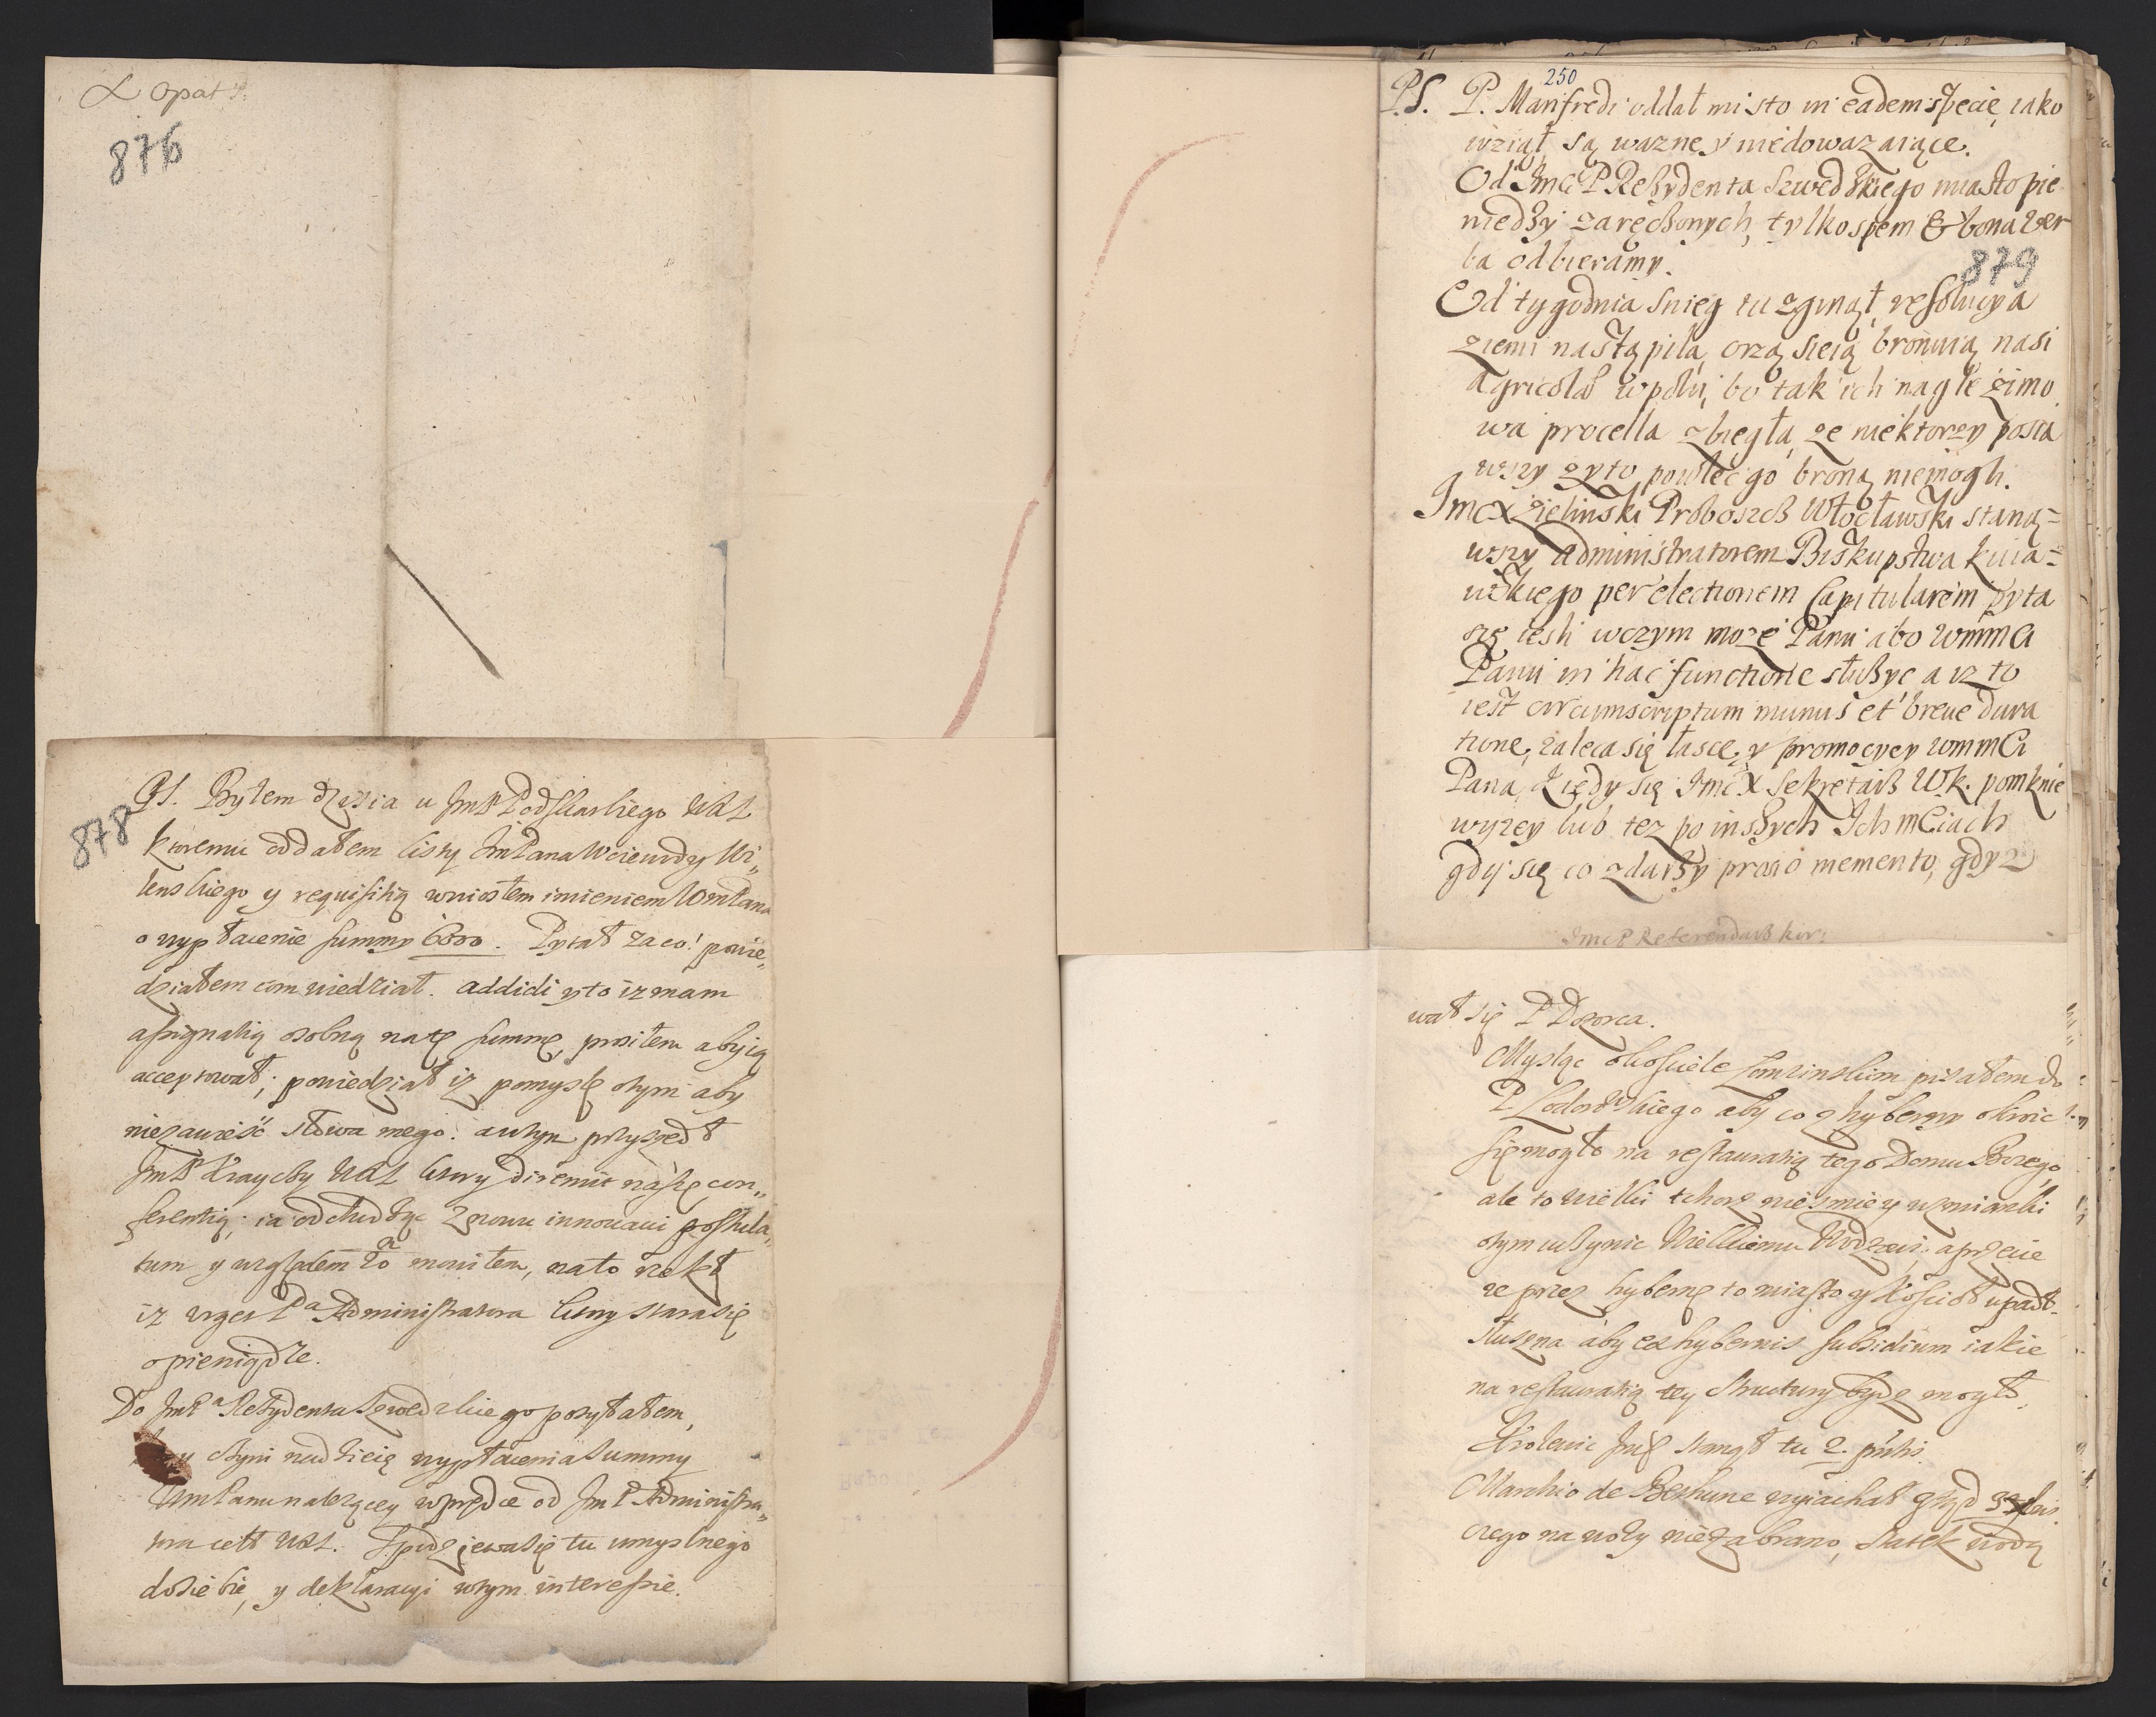 X opat P:
876
878
PS. Byłem dzisia u JmP Podskarbiego WXL
ktoremu oddałem listy JmPana Woiewody Wi„
lenskiego y requisitią wniosłem imieniem WmPana
o wypłacenie summy 6000. Pytał za co! powie„
działem com wiedział. addidi y to iz mam
assignatią osobną natę summę, prosiłem aby ią
acceptował; powiedział iz pomyslę otym aby
niezawieść słowa mego. a wtym przyszedł
JmP Krayczy WXL ktory diremit nászę con„
ferentią; ia odchodząc znowu innovavi postula„
tum y względem To mowiłem, na to rzekł
iz urget Pa Administratora ktory stara się
o pieniądze.
Do JmPa Rezydenta Szwedzkiego posyłałem,
czyni nadzieię wypłacenia summy
WmPanu nalezącey wprędce od JmP Administra„
tora cett WXL. Spodziewa się tu umyslnego
do siebie, y deklaracyi wtym interessie.
250
PS. P. Manfredi oddał mi sto in eadem specie, iako
wziął są wazne y niedowazaiące.
Od Jmci P Rezydenta Szwedzkiego miasto pie
niedzy zaręczonych, tylko spem & bona ver
ba odbieramy.
879
Od tygodnia snieg tu zginął, resolucya
ziemi nastąpiła, orzą sieią bronuią nasi
agricolae w polu, bo tak ich nagle zimo
wa procella zbiegła, ze niektorzy posia
wszy zyto powlec go broną niemogli.
Jmc X Zielinski Proboszcz Włocławski staną=
wszy administratorem Biskupstwa kuia=
wskiego per electionem Capitularem pyta
się iesli wczym moze Panu abo WmmCi
Panu in hac functione słuzyc a iz to
iest circumscriptum munus et breve dura
tione, zaleca się łasce y promocyey WmmCi
Pana, kiedy się Jmc X Sekretarz WK. pomknie
wyzey lub tez po inszych IchmCiach
gdy się co zdarzy prosio memento, gdyz
JmcP Referendarz kor:
wał się P Dozorca.
Mysląc o kosciele Łomzinskim pisałem do
aby co z hyberny okroic
się mogło na restauratią tego Domu Bozego,
ale to wielki tchorz niesmie y wzmianki
otym uczynic Wielkiemu Wodzowi, a przecie
ze przez hybernę to miasto y Kosciół upadł.
słuszna aby ex hybernis subsidium iakie
na restauratią tey Structury bydz mogło.
Krolewic Jmć stanął tu 2. pntis.
Marchio de Bethune wyiachał ztąd
czego na wozy niezabrano, statek wodą